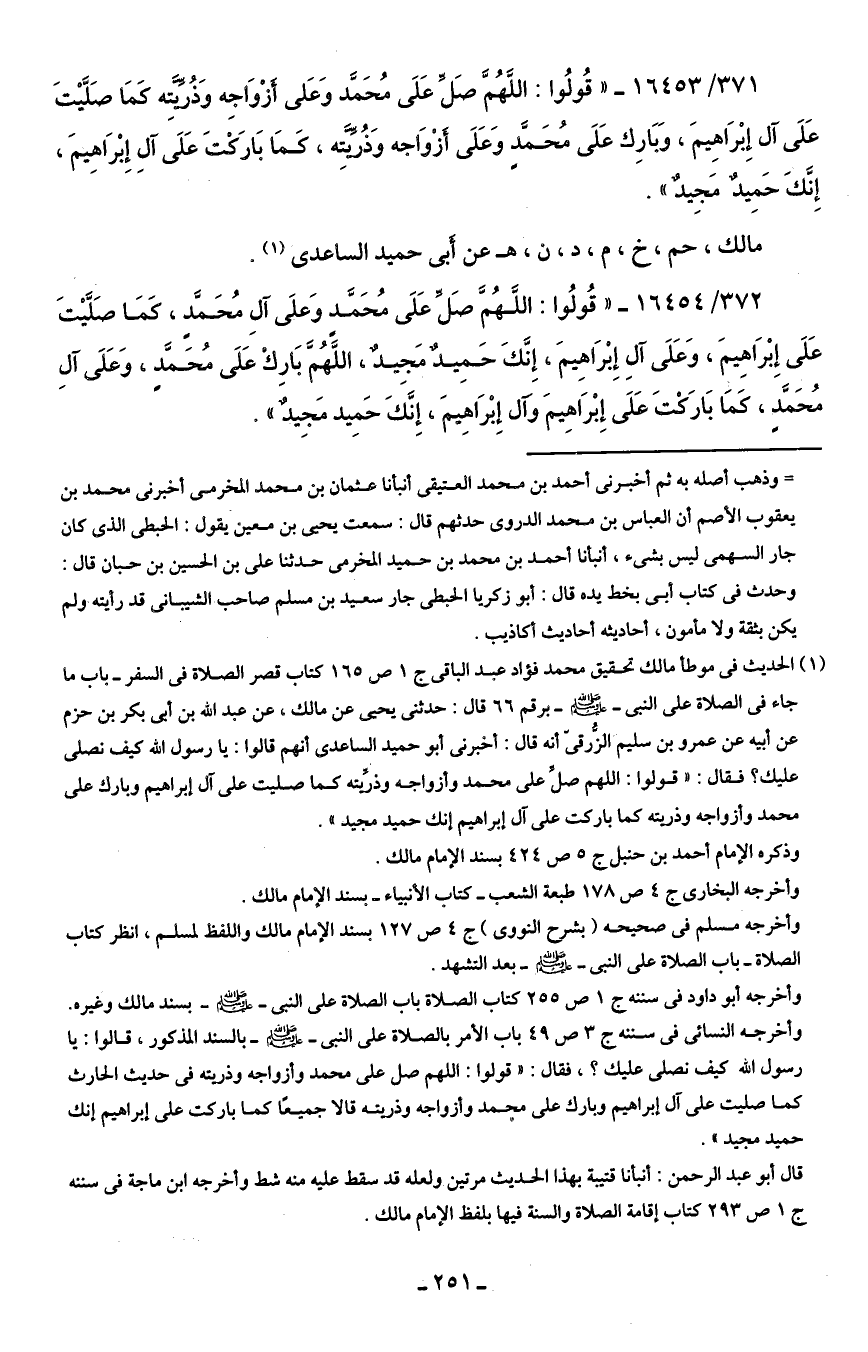 ٣٧١/ ١٦٤٥٣ ـ « قُولُوا : اللَّهُمَّ صَلِّ عَلَى مُحَمَّد وَعَلى أَزْوَاجِه وَذُرِّيَّته كَمَا صَلَّيْتَ
عَلَى آل إِبْرَاهِيمَ ، وَبَارِك عَلَى مُحَمَّدٍ وَعَلَى أَزْوَاجه وَذُرِّيَّته ، كَمَا بَارَكْتَ عَلَى آلِ إِبْرَاهِيمَ ،
إِنَّكَ حَمِيدٌ مَجِيدٌ » .
مالك ، حم ، خ ، م ، د ، ن ، هـ عن أَبى حميد الساعدى (١) .
٣٧٢/ ١٦٤٥٤ ـ « قُولُوا : اللَّهُمَّ صَلِّ عَلَى مُحَمَّدٍ وَعَلَى آلِ مُحَمَّدٍ ، كَمَا صَلَّيْتَ
عَلَى إِبْرَاهِيمَ ، وَعَلَى آلِ إِبْرَاهِيمَ ، إِنَّكَ حَمِيدٌ مَجِيدٌ ، اللَّهُمَّ بَارِكْ عَلَى مُحَمَّدٍ ، وَعَلَى آلِ
مُحَمَّدٍ ، كَمَا بَارَكْتَ عَلَى إِبْرَاهِيمَ وَآل إِبْرَاهِيمَ ، إِنَّكَ حَمِيد مَجِيدٌ » .
= وذهب أصله به ثم أخبرنى أحمد بن محمد العتيقى أنبأنا عثمان بن محمد المخرمى أخبرنى محمد بن
يعقوب الأصم أن العباس بن محمد الدروى حدثهم قال : سمعت يحيى بن معين يقول : الحبطى الذى كان
جار السهمى ليس بشىء ، أنبأنا أحمد بن محمد بن حميد المخرمى حدثنا على بن الحسين بن حبان قال :
وحدث فى كتاب أبى بخط يده قال : أبو زكريا الحبطى جار سعيد بن مسلم صاحب الشيبانى قد رأيته ولم
يكن بثقة ولا مأمون ، أحاديثه أحاديث أكاذيب .
(١) الحديث فى موطأ مالك تحقيق محمد فؤاد عبد الباقى ج ١ ص ١٦٥ كتاب قصر الصلاة فى السفر ـ باب ما
جاء فى الصلاة على النبى ـ ﷺ ـ برقم ٦٦ قال : حدثنى يحيى عن مالك ، عن عبد الله بن أبى بكر بن حزم
عن أبيه عن عمرو بن سليم الزُّرقىّ أنه قال : أخبرنى أبو حميد الساعدى أنهم قالوا : يا رسول الله كيف نصلى
عليك؟ فقال : « قولوا : اللهم صلِّ على محمد وأزواجه وذرِّيته كما صليت على آل إبراهيم وبارك على
محمد وأزواجه وذريته كما باركت على آل إبراهيم إنك حميد مجيد » .
وذكره الإمام أحمد بن حنبل ج ٥ ص ٤٢٤ بسند الإمام مالك .
وأخرجه البخارى ج ٤ ص ١٧٨ طبعة الشعب ـ كتاب الأنبياء ـ بسند الإمام مالك .
وأخرجه مسلم فى صحيحه ( بشرح النووى ) ج ٤ ص ١٢٧ بسند الإمام مالك واللفظ لمسلم ، انظر كتاب
الصلاة ـ باب الصلاة على النبى ـ ﷺ ـ بعد التشهد .
وأخرجه أبو داود فى سننه ج ١ ص ٢٥٥ كتاب الصلاة باب الصلاة على النبى ـ ﷺ ـ بسند مالك وغيره.
وأخرجه النسائى فى سننه ج ٣ ص ٤٩ باب الأمر بالصلاة على النبى ـ ﷺ ـ بالسند المذكور ، قالوا : يا
رسول الله كيف نصلى عليك ؟ ، فقال : « قولوا : اللهم صل على محمد وأزواجه وذريته فى حديث الحارث
كما صليت على آل إبراهيم وبارك على محمد وأزواجه وذريته قالا جميعًا كما باركت على إبراهيم إنك
حميد مجيد » .
قال أبو عبد الرحمن : أنبأنا قتيبة بهذا الحديث مرتين ولعله قد سقط عليه منه شط وأخرجه ابن ماجة فى سننه
ج ١ ص ٢٩٣ كتاب إقامة الصلاة والسنة فيها بلفظ الإمام مالك .
ـ ٢٥١ ـ